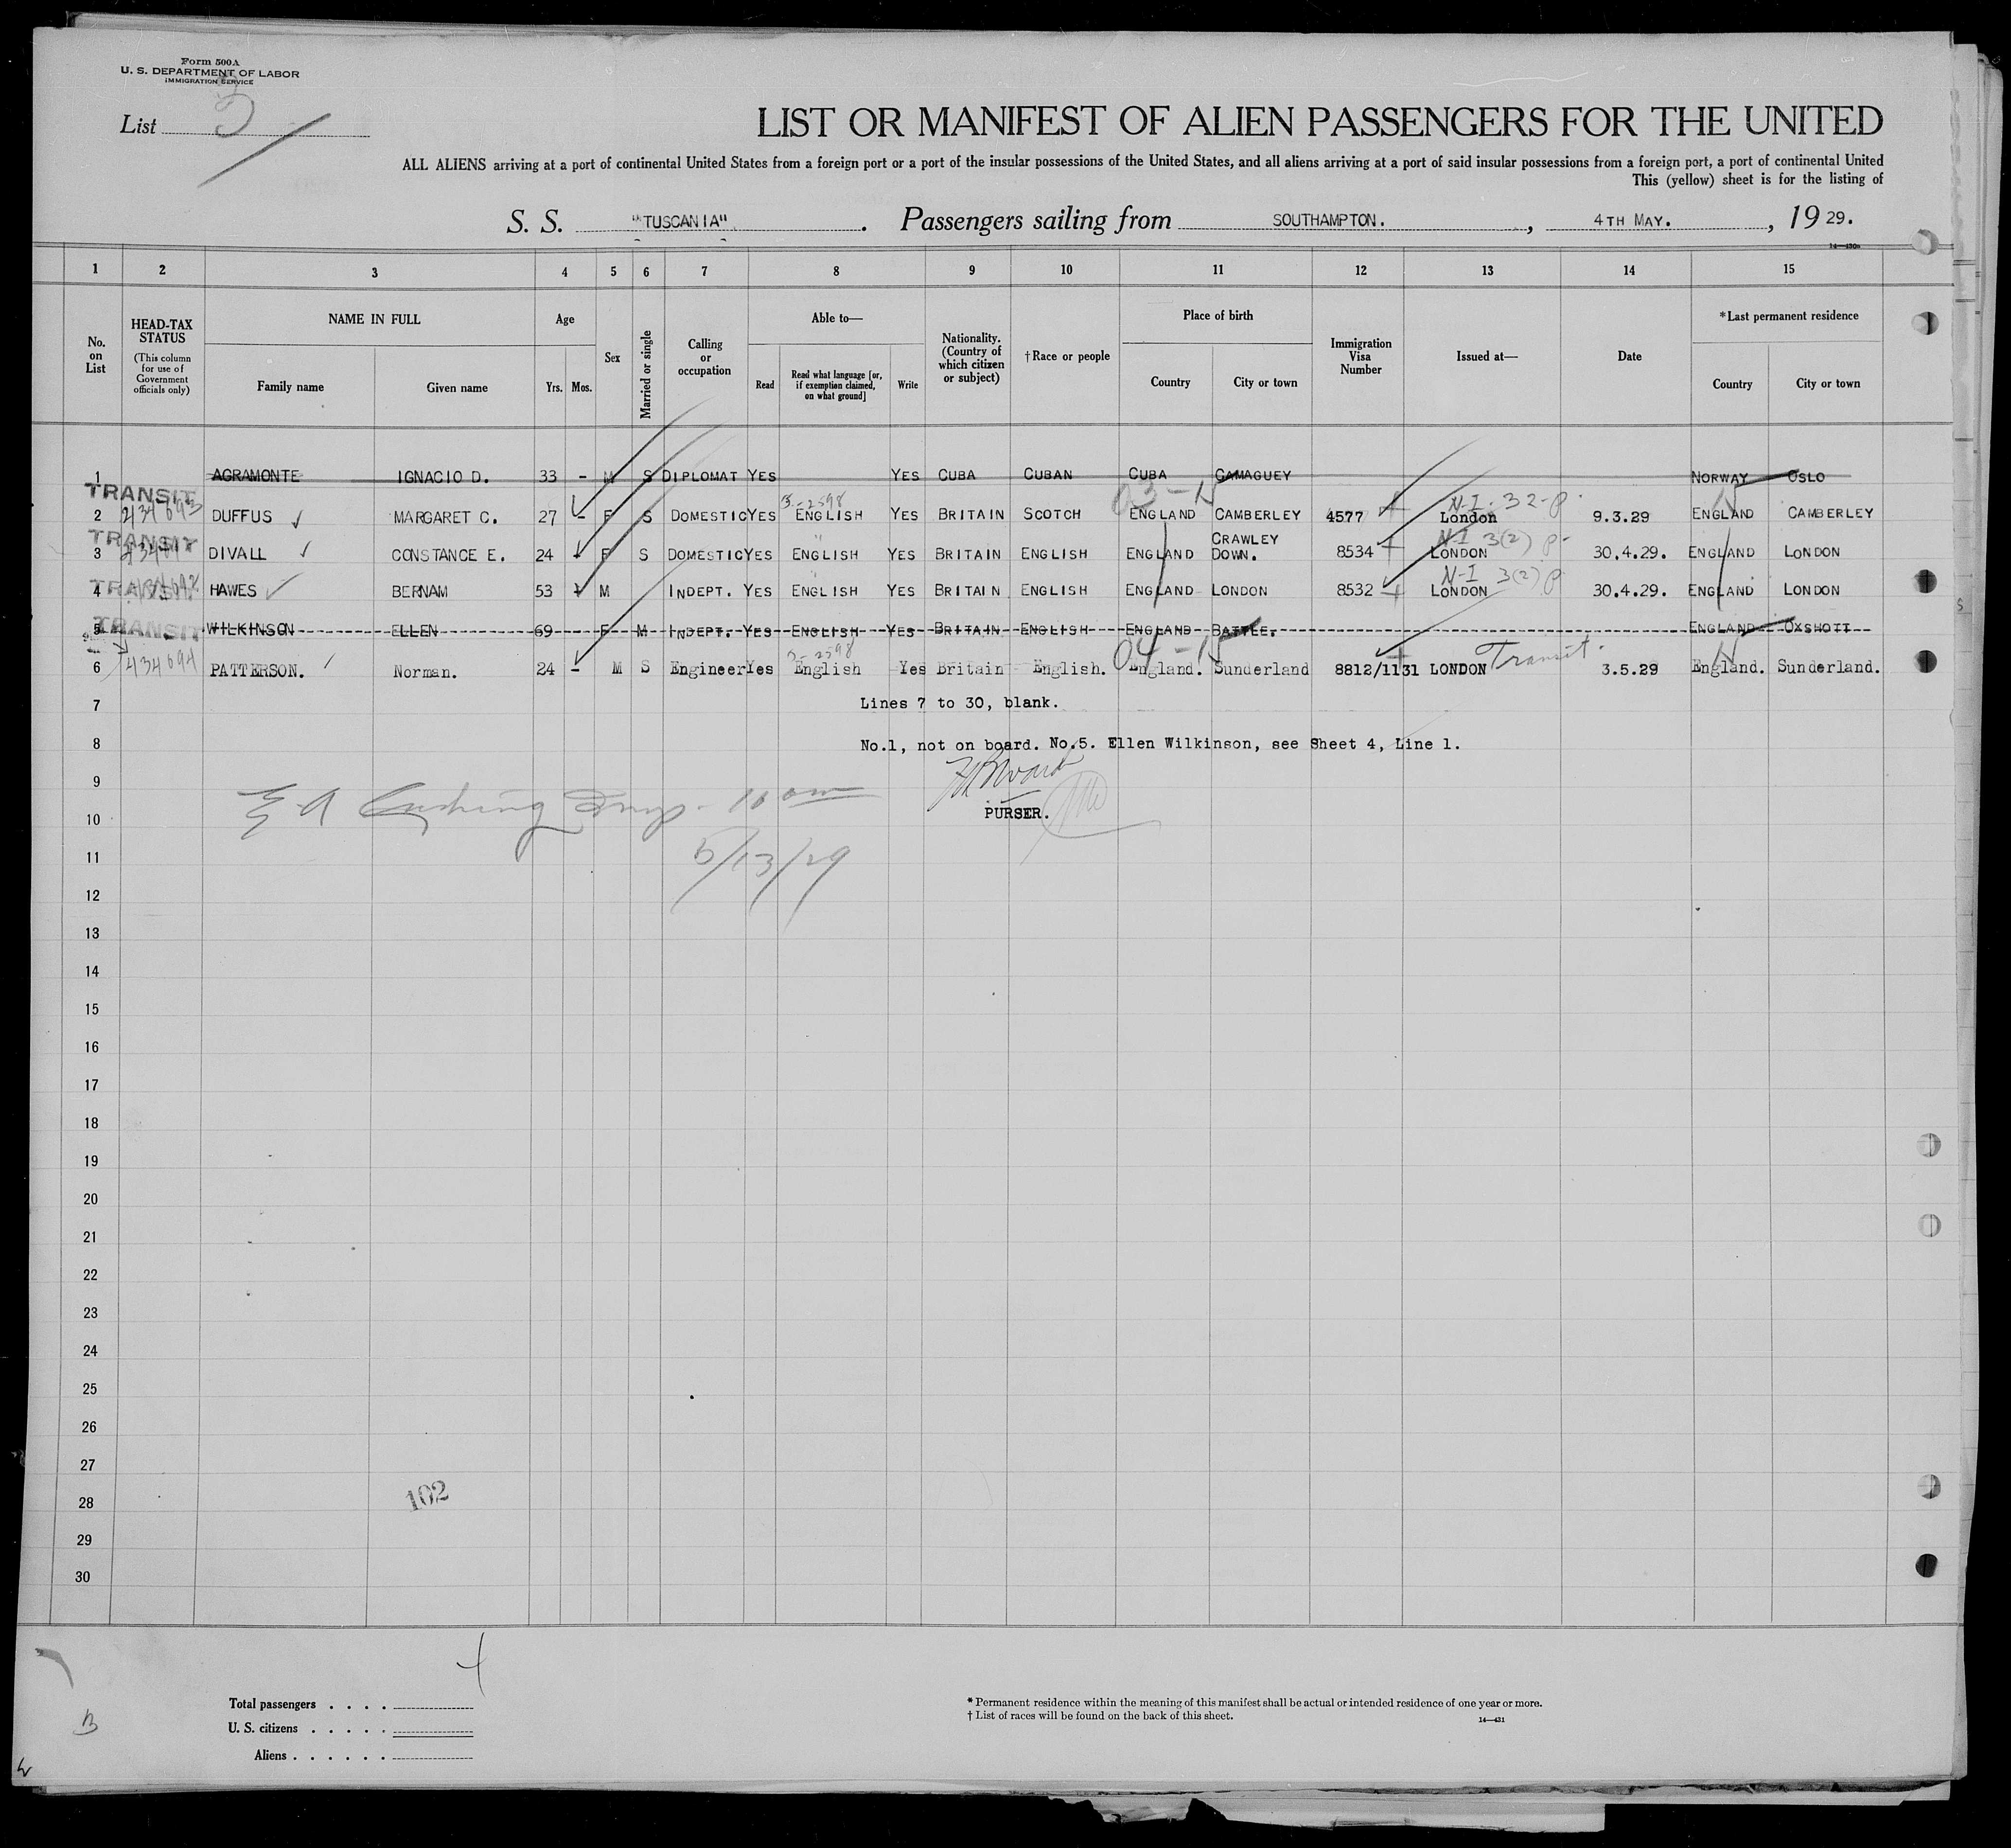 Form 500A
U. S. DEPARTMENT OF LABOR
IMMIGRATION SERVICE
List 3
LIST OR MANIFEST OF ALIEN PASSENGERS FOR THE UNITED
ALL ALIENS arriving at a port of continental United States from a foreign port or a port of the insular possessions of the United States, and all aliens arriving at a port of said insular possessions from a foreign port, a port of continental United
This (yellow) sheet is for the listing of
S. S. "TUSCANIA". Passengers sailing from SOUTHAMPTON. , 4TH MAY. , 19 29.
14—430a
1 2 3 4 5 6 7 8 9 10 11 12 13 14 15
No. on List
HEAD-TAX STATUS (This column for use of Government officials only)
NAME IN FULL Family name Given name
Age Yrs. Mos.
Sex
Married or single
Calling or occupation
Able to— Read Read what language [or, if exemption claimed, on what ground] Write
Nationality. (Country of which citizen or subject)
†Race or people
Place of birth Country City or town
Immigration Visa Number
Issued at—
Date
*Last permanent residence Country City or town
1 AGRAMONTE IGNACIO D. 33 - M S DIPLOMAT YES YES CUBA CUBAN CUBA CAMAGUEY NORWAY OSLO
TRANSIT 03-N N-I. 32-p.
3-2598
2 434693 DUFFUS MARGARET C. 27 - F S DOMESTIC YES ENGLISH YES BRITAIN SCOTCH ENGLAND CAMBERLEY 4577 London 9.3.29 ENGLAND CAMBERLEY
TRANSIT CRAWLEY N-I 3(2) p-
3 DIVALL CONSTANCE E. 24 F S DOMESTIC YES ENGLISH YES BRITAIN ENGLISH ENGLAND DOWN. 8534 LONDON 30.4.29. ENGLAND LONDON
TRANSIT N-I 3(2) p
4 HAWES BERNAM 53 M INDEPT. YES ENGLISH YES BRITAIN ENGLISH ENGLAND LONDON 8532 LONDON 30.4.29. ENGLAND LONDON
TRANSIT
5 WILKINSON ELLEN 69 F M INDEPT. YES ENGLISH YES BRITAIN ENGLISH ENGLAND BATTLE. ENGLAND OXSHOTT
3-2598 04-N Transit.
6 434694 PATTERSON. Norman. 24 - M S Engineer Yes English Yes Britain English. England. Sunderland 8812/1131 LONDON 3.5.29 England. Sunderland.
7 Lines 7 to 30, blank.
8 No.1, not on board. No.5. Ellen Wilkinson, see Sheet 4, Line 1.
9
10 PURSER.
5/13/29
11
12
13
14
15
16
17
18
19
20
21
22
23
24
25
26
27
28 102
29
30
4
Total passengers . . . .
U. S. citizens . . . . .
Aliens . . . . . .
B
* Permanent residence within the meaning of this manifest shall be actual or intended residence of one year or more.
† List of races will be found on the back of this sheet.
14—431